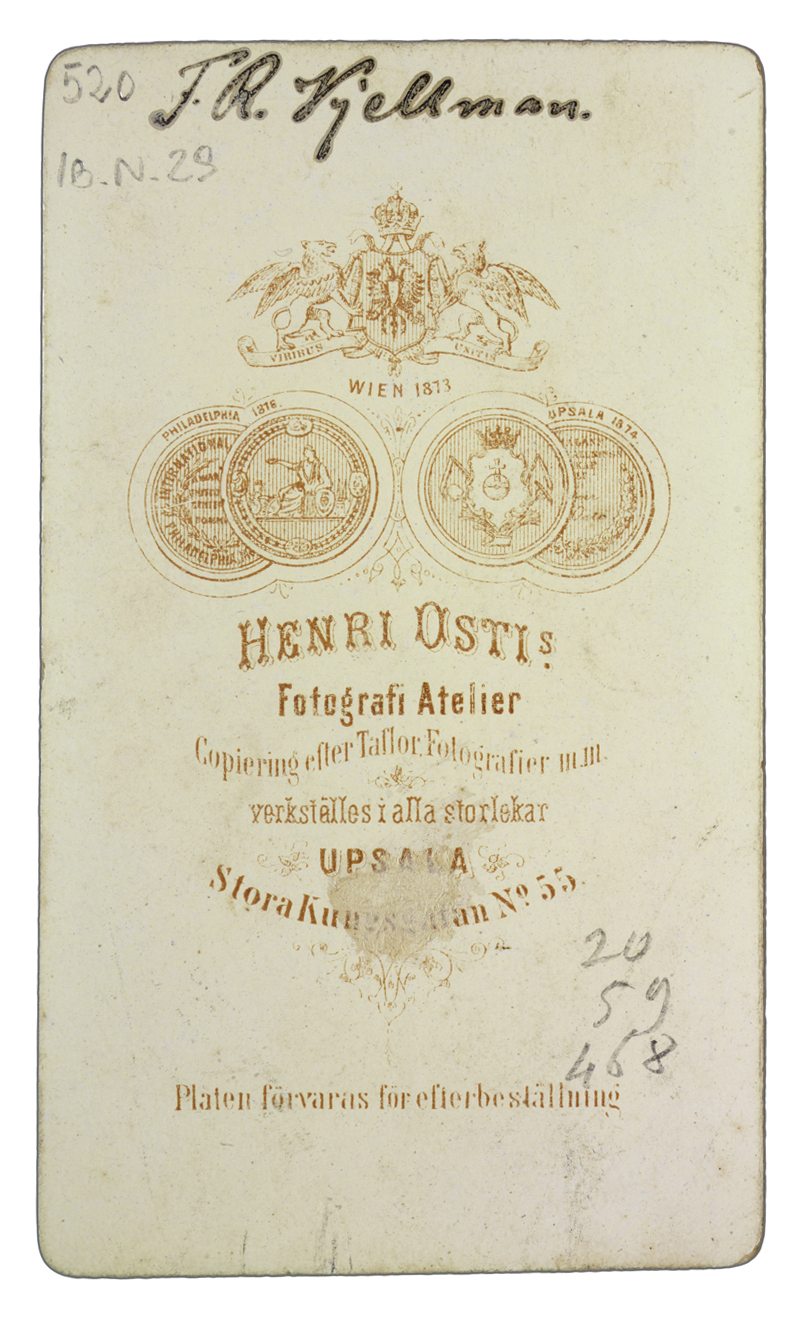 520
F. R. Kjellman.
1B-N-29
VIRIBUS UNITIS
WIEN 1873
PHILADELPHIA 1876.
UPSALA 1874.
INTERNATIONAL
PHILADELPHIA
HENRI OSTIS
Fotografi Atelier
Copiering efter Taflor, Fotografier m.m.
verkställes i alla storlekar
UPSALA
Stora Kungsgatan No 55.
20
59
468
Platen förvaras för efterbeställning